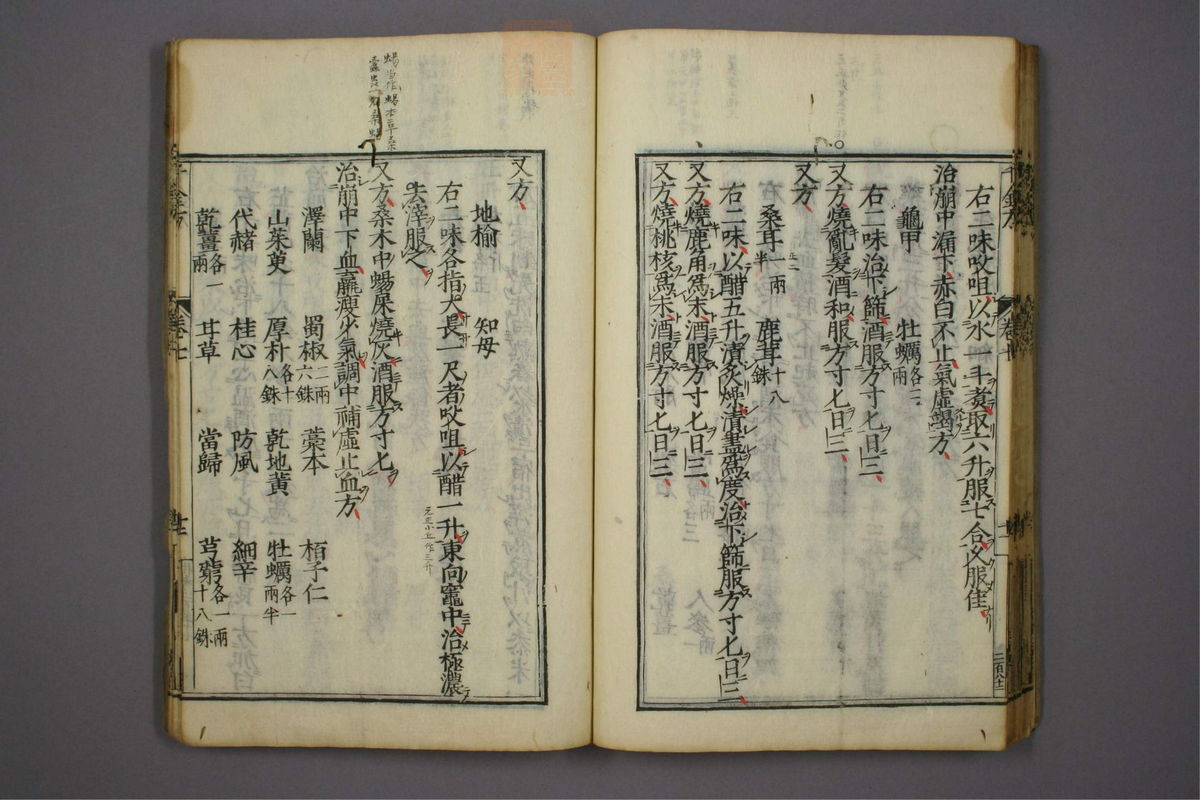 右二味㕮咀以水 斗煮取六升服七合久服佳
治崩中漏下赤白不止氣虛竭方
龜甲 牡蠣各三兩
右二味治下篩酒服方寸匕日三
又方燒亂髮酒和服方寸匕日三
又方
桑耳二兩半 鹿茸十八銖
右二味以醋五升漬炙燥漬盡爲度治下篩服方寸匕日三
又方燒鹿角爲末酒服方寸匕日三
又方燒桃核爲末酒服方寸匕日三
千金方 卷七 十二
蝎當作蝎本草桑
又方
地榆 知母
右二味各指大長一尺者㕮咀以醋一升東向竈中治極濃
去滓服之
又方桑木中蝎屎燒灰酒服方寸匕
治崩中下血羸瘦少氣調中補虛止血方
澤蘭 蜀椒二兩六銖 藁本 栢子仁
山茱萸 厚朴各十八銖 乾地黃 牡蠣各一兩半
代赭 桂心 防風 細辛
乾薑各一兩 甘草 當歸 芎藭各一兩十八銖